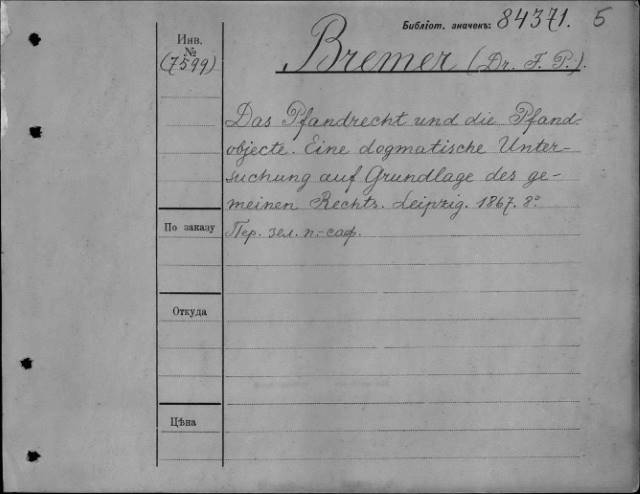 Библіот. значекъ: 84371. 5
Инв.
№
(7599)
Bremer (Dr. F. P.).
Das Pfandrecht und die Pfand-
objecte. Eine dogmatische Unter-
suchung auf Grundlage des ge-
meinen Rechts. Leipzig. 1867. 8º
По заказу
Пер. зел. п.-саф.
Откуда
Цѣна